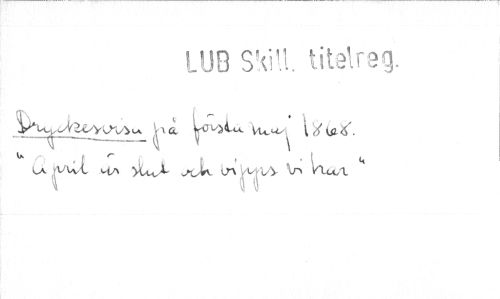 LUB Skill. titelreg.
Dryckesvisa på första maj 1868.
"April är slut och vi har"